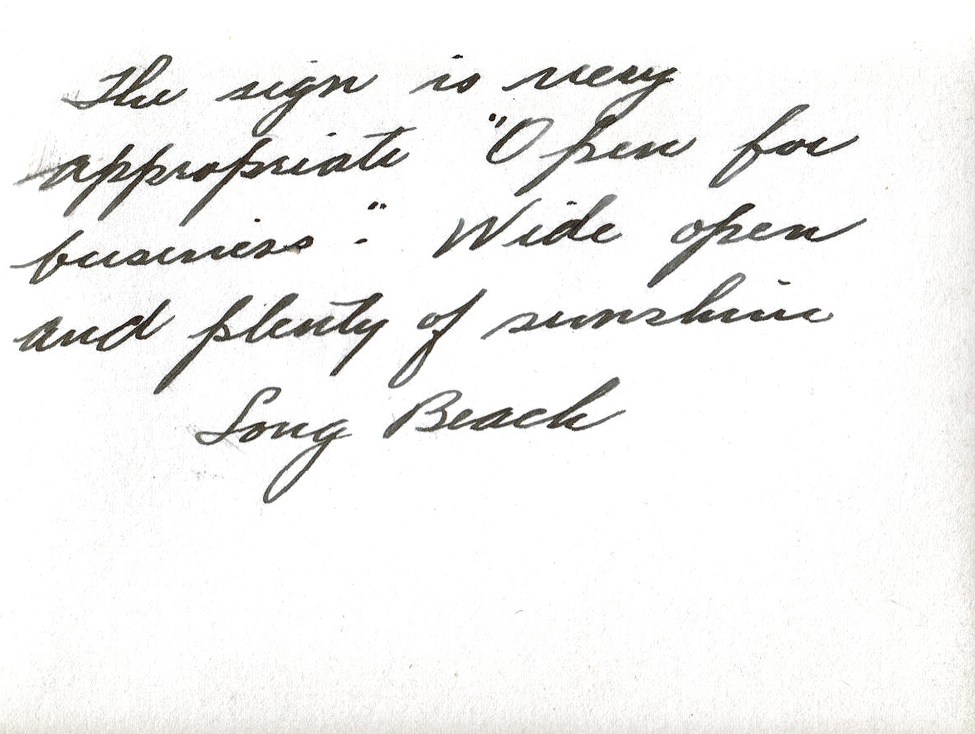 The sign is very
appropriate "Open for
business." Wide open
and plenty of sunshine
Long Beach